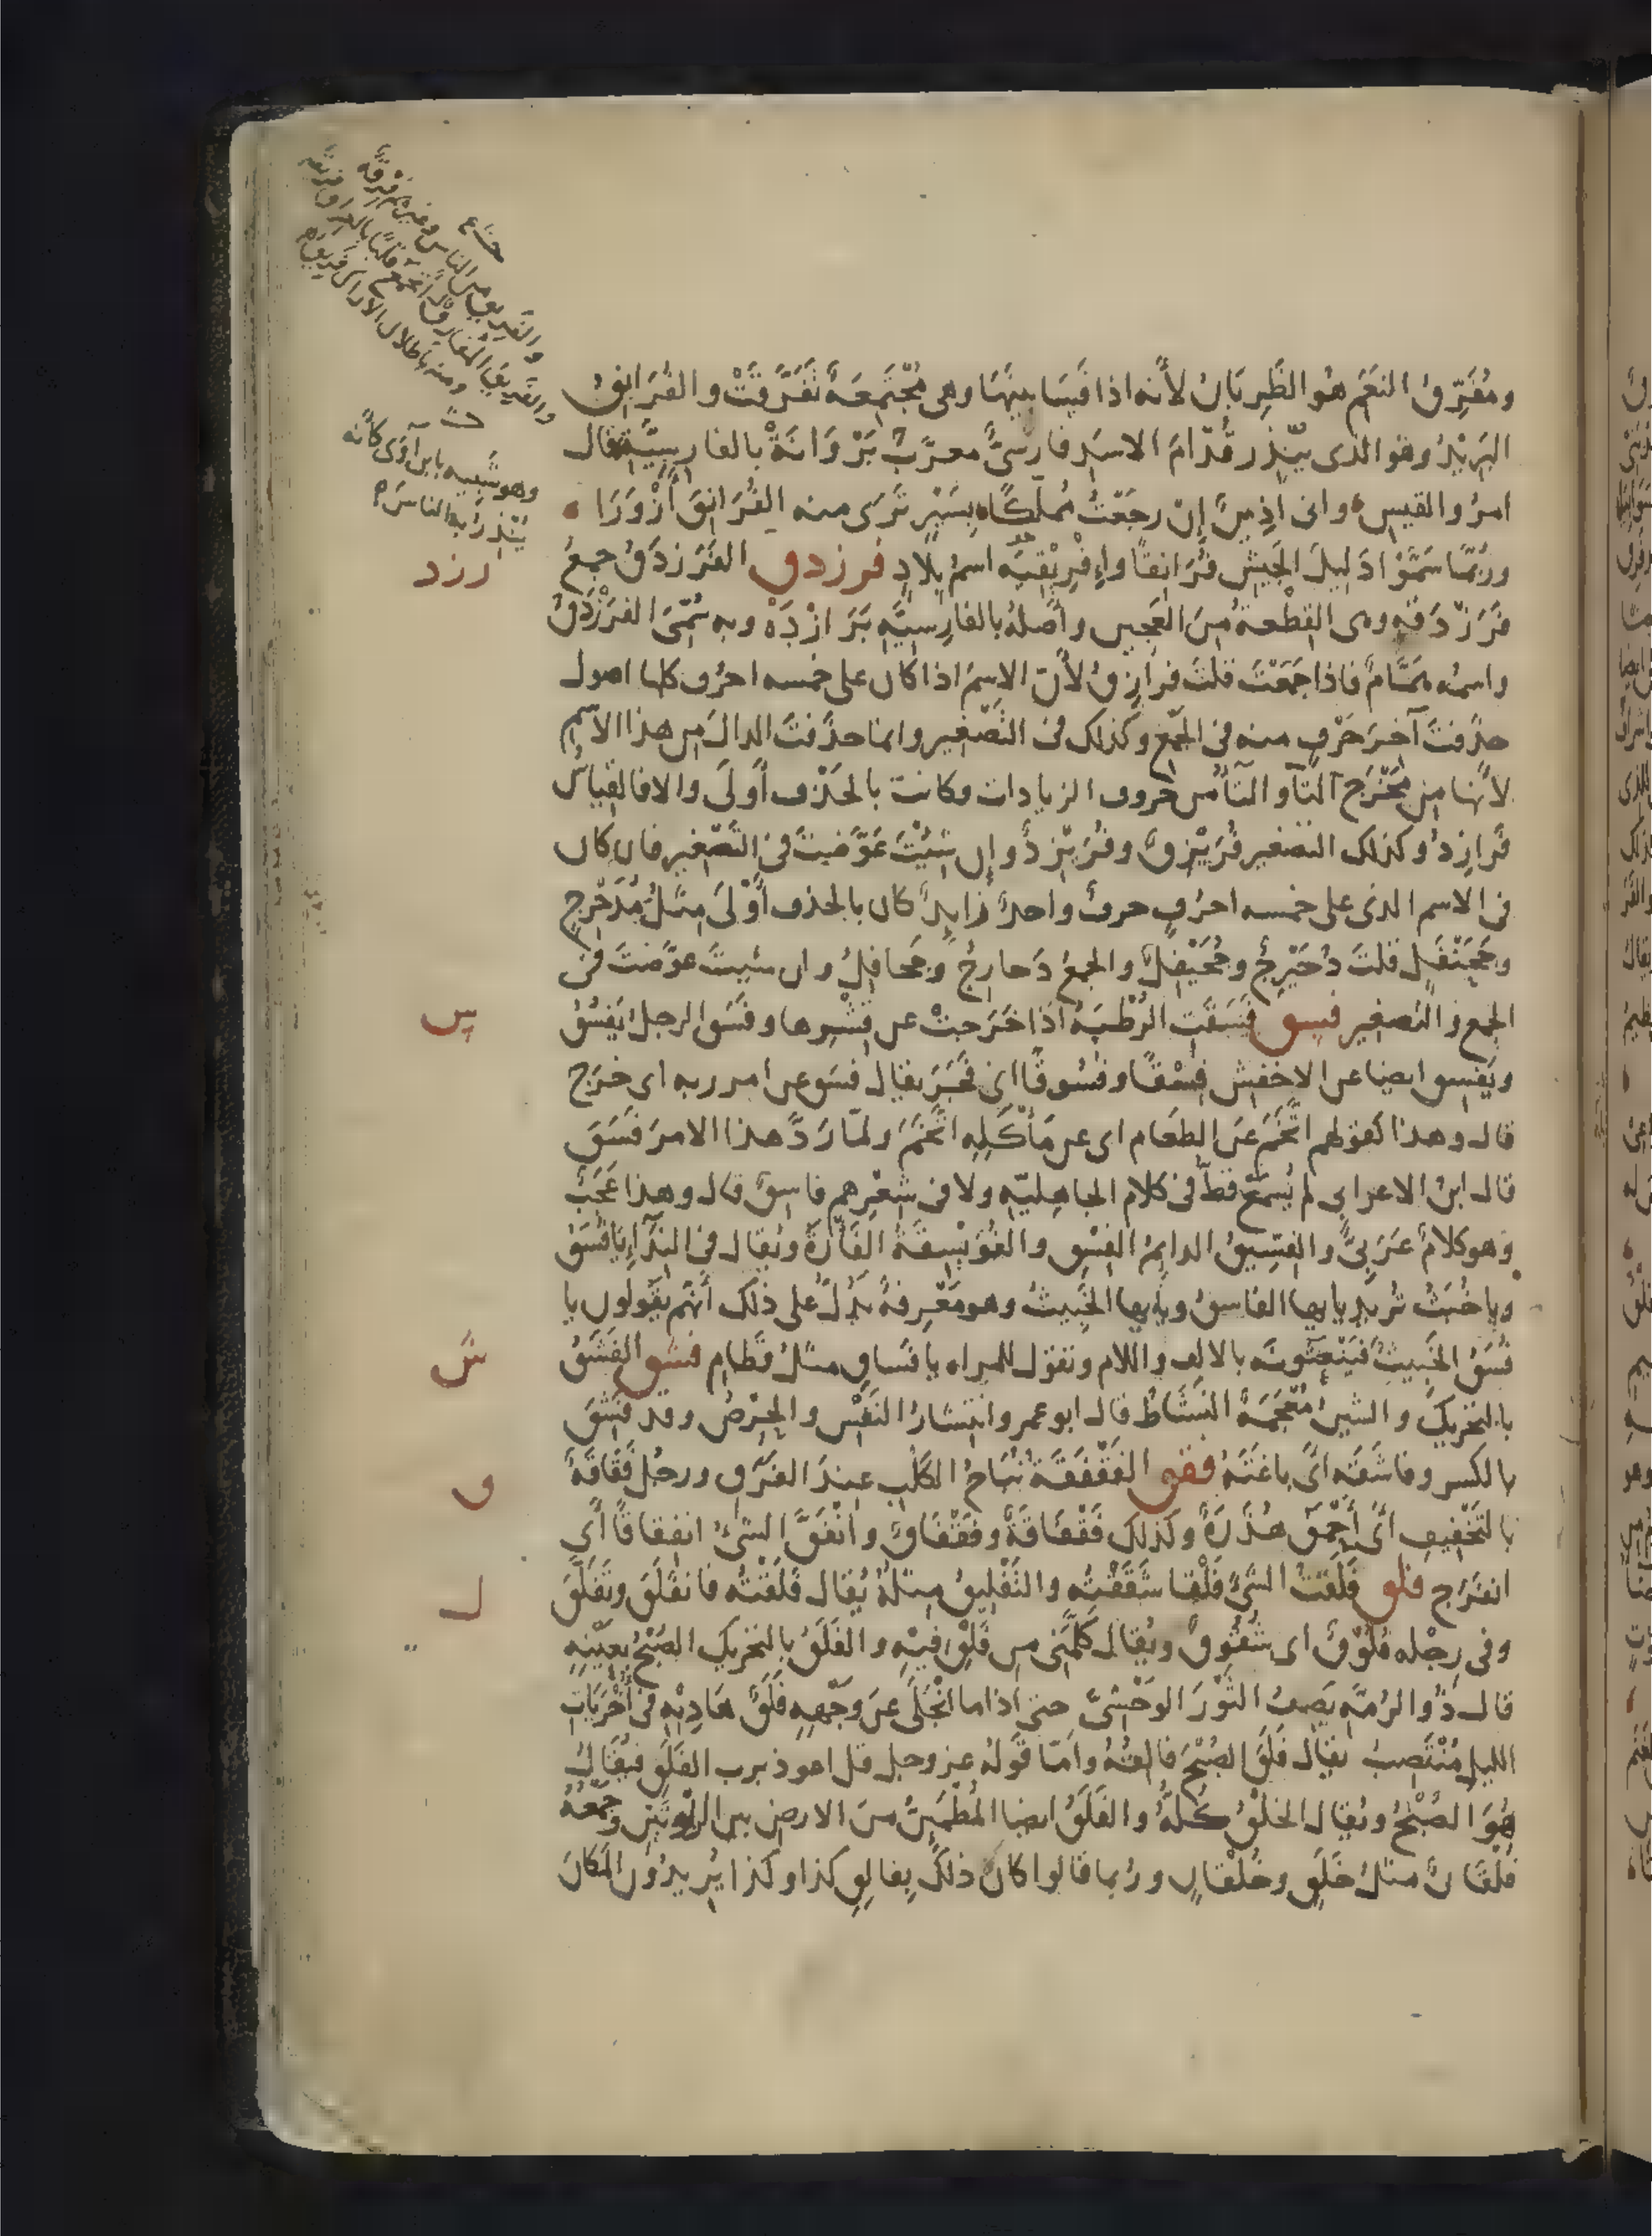 ومُفَرِّقُ النَعَمِ هُوَ الظَرِبَانُ لأنه اذا فَسَا بينَهَا وهى مُجْتَمِعَةٌ تَفَرَّقَتْ والفُرَانِقُ
البَرِيْدُ وهو الذى يُنْذِر قُدّامَ الاسَدِ فارسىٌّ معرَّبٌ بَرْوَانَهْ بالفارسِيَّة قال
امرُو القيس وانى اذِينٌ إنْ رجَعْتُ مُملَّكًا بِسَيْرٍ تَرَى منه الفُرَانِقَ أزْوَرَا
ورُبَّما سَمَّوْا دَلِيلَ الجَيْشِ فُرَانِقًا وإفْرِيْقِيَّه اسمُ بِلادٍ فرزدق الفَرَزْدَقُ جمعُ
فَرَزْدَقَهٍ وهى القِطْعةُ مِنَ العَجِين وأصْلُهُ بالفارِسيَّه بَرَازْدَهْ وبه سُمِّىَ الفَرَزْدَقُ
واسمُه هَمَّامٌ فاذا جَمَعْتَ قلتَ فرازِقُ لأنّ الاسمَ اذا كان على خمسه احرُف كلها اصول
حذَفتَ آخرَ حَرْفٍ منه فى الجَمْعِ وكذلك فى التَصْغير وانما حذَفتَ الدالَ من هذا الاسْمِ
لأنها من مَخْرَجِ التآءِ والتآءُ من حروف الزيادات وكانت بالحَذْف أَولَى والا فالقِياسُ
فَرازِدُ وكذلك التصْغير فُرَيْزِقٌ وفُرَيْزِدٌ وإن شِئْتَ عَوَّضتَ فى التَّصْغير فان كان
فى الاسم الذى على خمسه احرُفٍ حرفٌ واحدٌ زايدٌ كان بالحذف أَوْلَى مثلُ مُدَحْرِجٍ
وجَحَنْفَلٍ قلتَ دُحَيْرِجٌ وجُحَيْفِلٌ والجمعُ دَحارِجُ وجَحافِلُ وان شئيتَ عوَّضتَ فى
الجمع والتصغير فسق فَسَقَتِ الرُطَبَهُ اذا خَرَجتْ عن قِشْرِها وفَسَق الرجل يَفْسُقُ
ويَفْسِق ايضا عن الاخفش فِسْقًا وفُسُوقًا اى فَجَرَ يقال فسَق عن امر ربه اى خرَج
قال وهذا كقولهم اتَّخَمَ عَن الطعَام اى عن مَأْكَلِهِ اتَّخَمَ ولمّا رَدَّ هذا الامرَ فَسَقَ
قال ابنُ الاعرابى لم يُسمَعْ قطُّ فى كلام الجاهِليّه ولا فى شِعْرِهم فاسِقٌ قال وهذا عَجَبٌ
وهو كلامٌ عَرَبىٌّ والفِسِّيقُ الدايمُ الفِسْقِ والفُوَيْسِقَةُ الفَأْرَةُ ويُقال فى النِدآءِ يا فُسَقُ
ويا خُبَثُ تُريد يا يها الفاسِقُ ويا يها الخَبِيثُ وهو مَعْرِفةٌ يَدُلُّ على ذلك أنَّهم يَقولون يا
فُسَقُ الخَبيثُ فَينْعَتُونَه بالالِفِ واللام وتقول للمراه يا فَسَاقِ مثلُ قَطامِ فشق الفَشَقُ
بالتحريك والشينُ مُعْجَمَةٌ النَشَاطُ قال ابو عمرو انْتِشارُ النَفْسِ والحِرْصُ وقد فَشِقَ
بالكسر وفاشَقَه أى باغَتَهُ فقق الفَقْفَقَةُ نُبَاحُ الكَلْبِ عِندَ الفَرَقِ ورجُل فَقَاقَهٌ
بالتَخْفِيفِ أى أحْمقُ هُذَرَةٌ وكذلك فَقْفَاقَةٌ وفَقْفَاقٌ وانْفَقَّ الشئُ انفِقاقًا أى
انفَرَج فلق فَلَقْتُ الشئَ فَلْقا شَقَقْتُه والتَفْلِيقُ مثلهُ يُقال فَلَقْتُه فانْفَلَقَ وتَفَلَّقَ
وفى رِجْله فُلُوقٌ اى شُقُوقٌ ويُقال كَلَّمَنى من فَلْقِ فِيْهِ والفَلَقُ بالتحريك الصُبْحُ بعَيْنِهِ
قال ذُو الرُمَّهِ يَصِفُ الثَوْرَ الوَحْشِىَّ حتى اذاما انْجَلَى عن وَجْهِهِ فَلَقٌ هَادِيْهِ فى أُخْرَيَاتِ
الليلِ مُنْتَصِبُ يقال فَلَقَ الصُبْحَ فالِقُهُ وأمّا قَولُه عز وجل قل اعوذ برب الفَلَقِ فيُقالُ
هُوَ الصُبْحُ ويُقال الخَلْقُ كُلُّهُ والفَلَقُ ايضا المُطْمَئِنُّ من الارض بين الربْوتَينِ وجَمْعُهُ
فُلْقَانٌ مثلُ خَلَقٍ وخُلْقانٍ وربما قالوا كان ذلك بِفالِقِ كذا وكذا يُريدُون المَكانَ
والفَريق من الناس وغيرهم فِرْقَه
وهو شبيه بابن آوَى كأنّه
يُنْذِرُ به الناسَ
رزد
س
ش
ق
ل